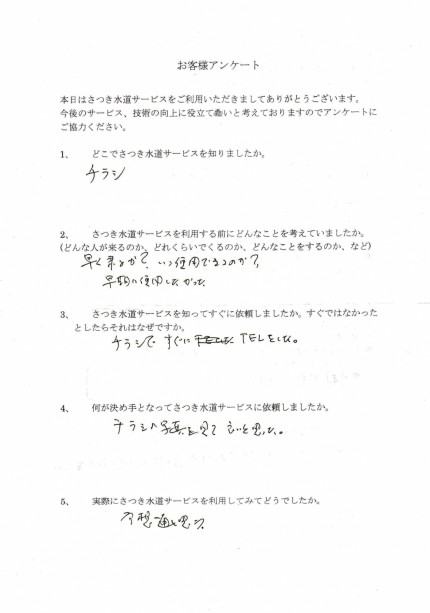 お客様アンケート
本日はさつき水道サービスをご利用いただきましてありがとうございます。
今後のサービス、技術の向上に役立て いと考えておりますのでアンケートに
ご協力ください。
1、 どこでさつき水道サービスを知りましたか。
チラシ
2、 さつき水道サービスを利用する前にどんなことを考えていましたか。
(どんな人が来るのか、どれくらいでくるのか、どんなことをするのか、など)
早く来るか?、いつ使用できるのか?
早期に使用したかった
3、 さつき水道サービスを知ってすぐに依頼しましたか。すぐではなかった
としたらそれはなぜですか。
チラシですぐに TELをした。
4、 何が決め手となってさつき水道サービスに依頼しましたか。
チラシの写真を見て 良いと思った。
5、 実際にさつき水道サービスを利用してみてどうでしたか。
予想通りと思う